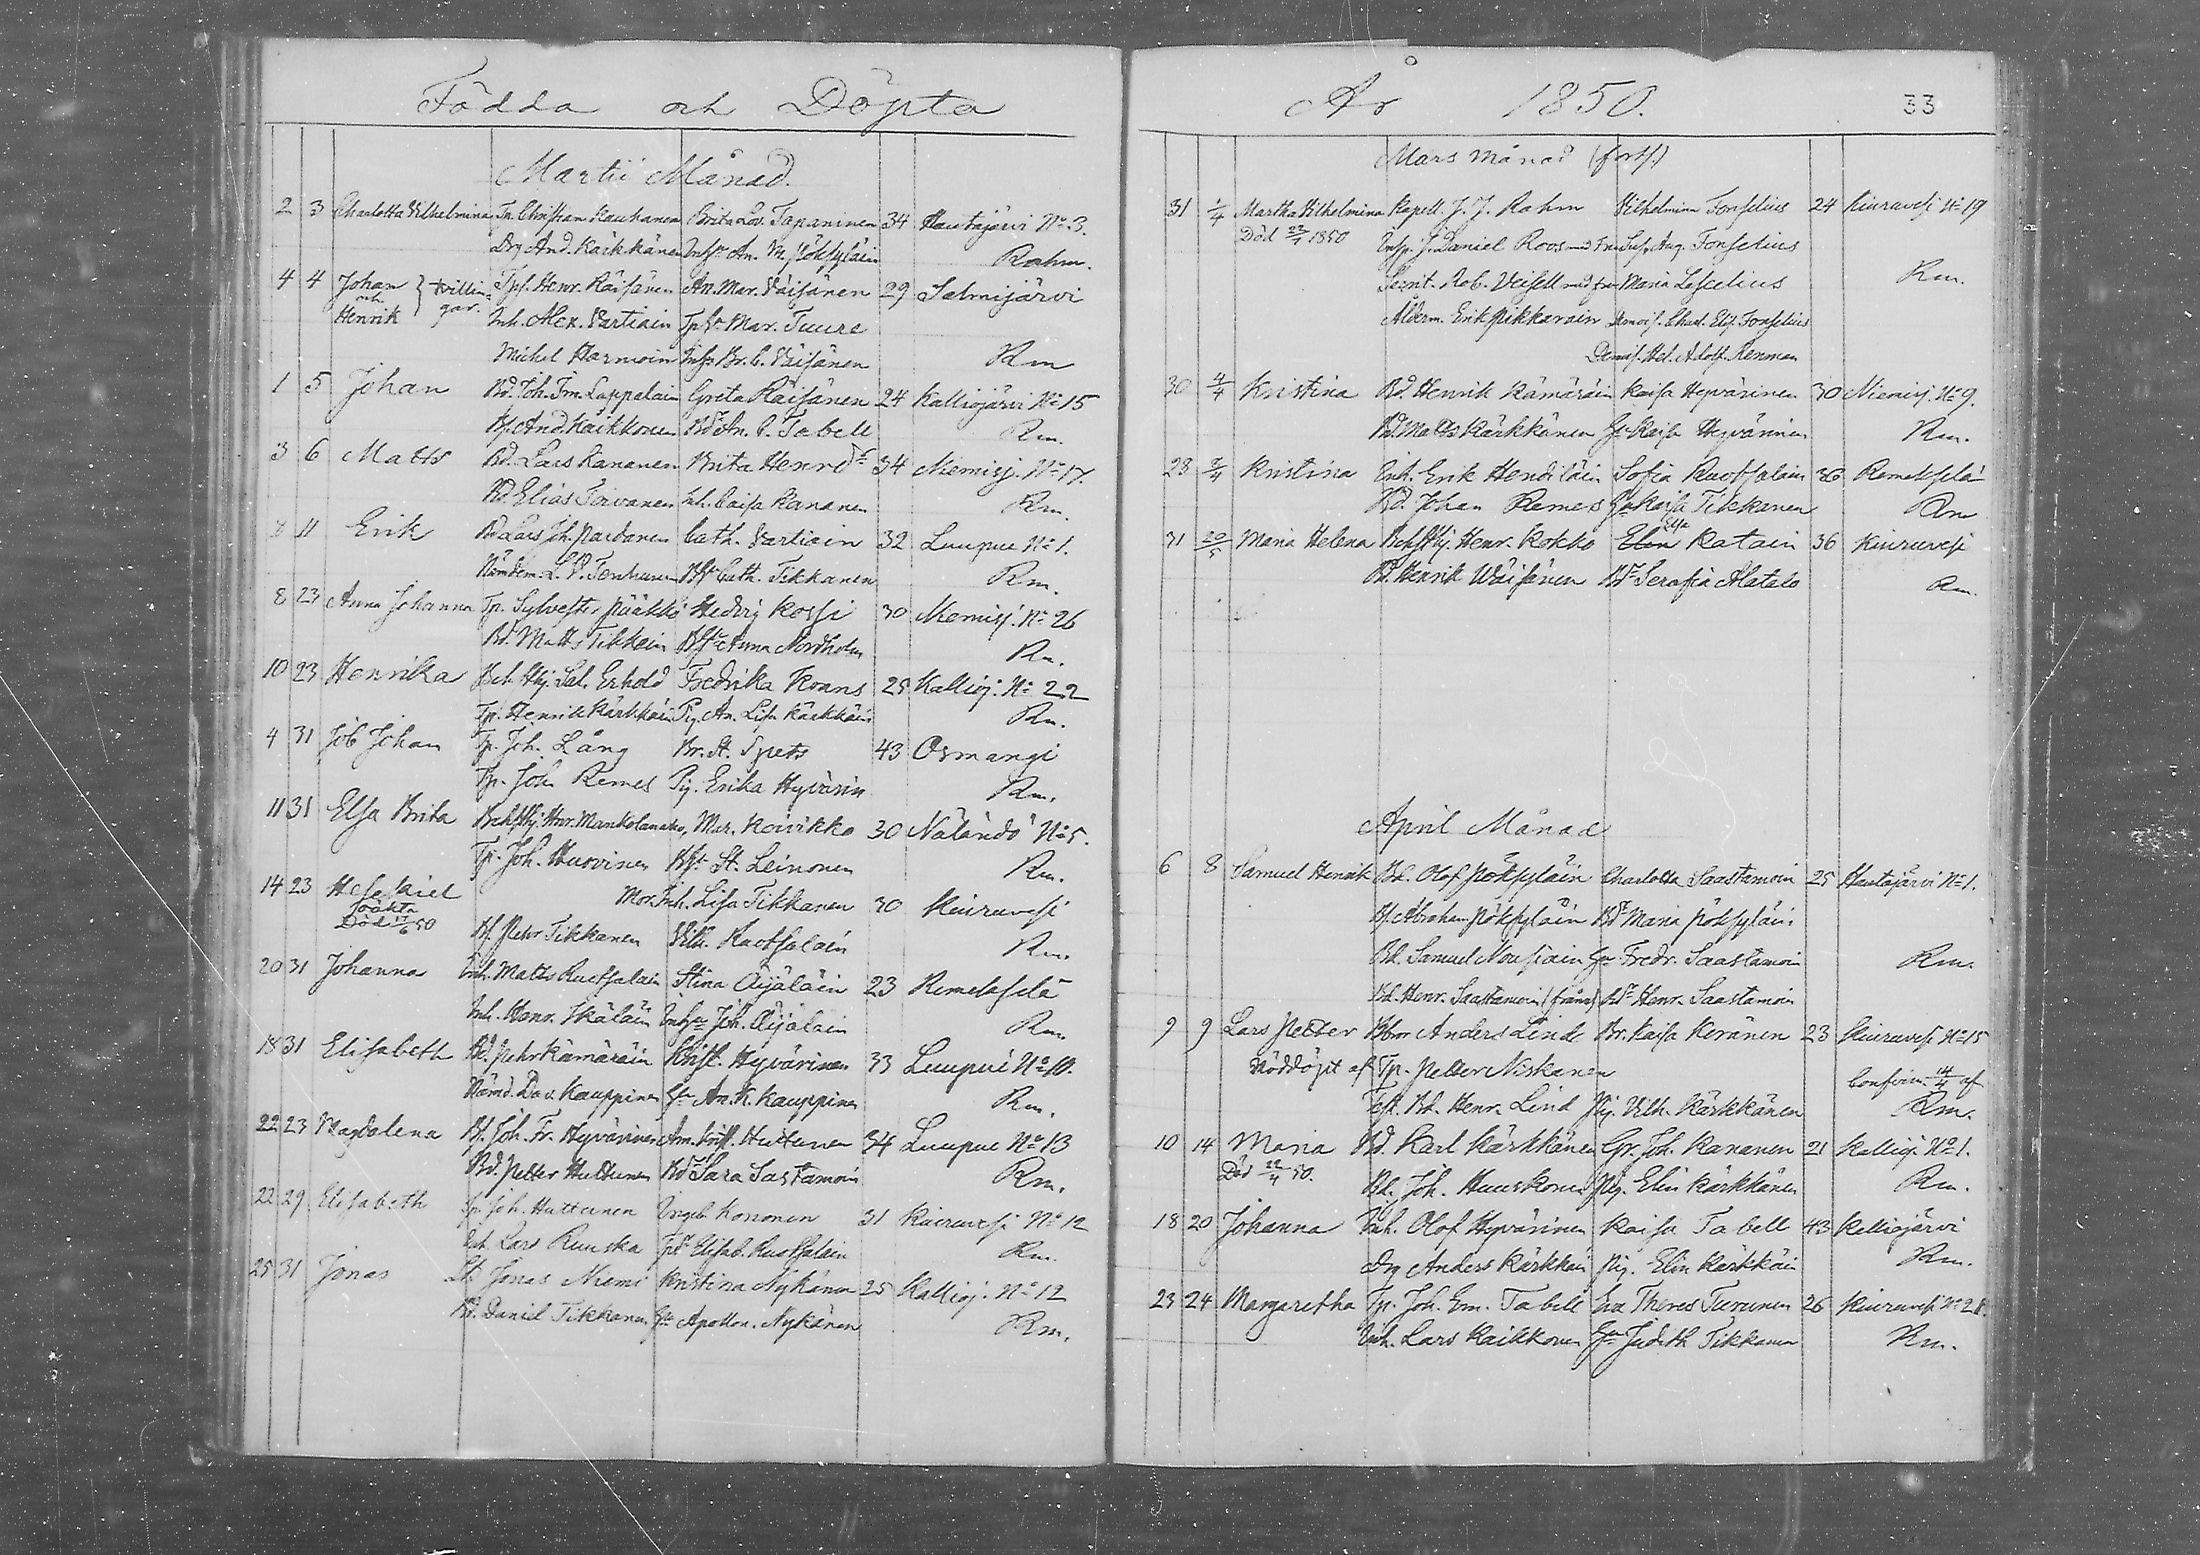 Födda och Döpta
Martii Månad.
2 3 Charlotta Vilhelmina Tp. Christian Kauhanen Brita Lov. Tapaninen 34 Hautajärvi No 3.
Drg And. Kärkkänen Inhs An. M. Pöksyläin Rahm.
4 4 Johan Tpf. Henr. Räisänen An. Mar. Väisänen 29 Salmijärvi
och } tvillingar.
Henrik Inh. Alex. Vartiain Tpf Mar. Tuure
Michel Harmoin Inhs Br. C. Väisänen Rm
1 5 Johan Bd. Joh. Im. Lappalain Greta Räisänen 24 Kalliojärvi No 15
Bf. And Kaikkonen Bd An. C. Tabell Rm.
3 6 Matts Bd. Lars Kananen Brita Henrd 34 Niemisj. No 17.
Bd Elias Toivanen Inh. Caisa Kananen Rm.
8 11 Erik Bd Lars Joh. Pardanen Cath. Vartiain 32 Luupue No 1.
Nämdem. L. P. Tenhunen Cath. Tikkanen Rm.
8 23 Anna Johanna Tp. Sylvester Pääkkö Hedvig Kossi 30 Niemisj. No 26
Bd. Matts Tikkain Anna Nordholm Rm.
10 23 Henrika Sal. Erhold Fredrika Krans 25 Kallioj. No 22
Tp. Henrik Kärkkäin Pig. An. Lisa Kärkkäin Rm.
4 31 Job Johan Tp. Joh. Lång Br. St. Spets 43 Osmangi
Tp. Joh Remes Pig. Erika Hyvärin Rm.
11 31 Elsa Brita Henr. Mankolanaho, Mar. Koivikko 30 Näländö No 5.
Tp. Joh. Huovinen St. Leinonen Rm.
14 23 Hesekiel Mor. Inh. Lisa Tikkanen 30 Kiuruvesi
oäkta
Död 17/6 50 Bf. Petr Tikkanen Vilh. Ruotsalain Rm.
20 31 Johanna Inh. Matts Ruotsalain Stina Äijäläin 23 Remekselä
Inh. Henr. Ikäläin Joh. Äijäläin Rm.
18 31 Elisabeth Bd. Petr Kämäräin Krist. Hyvärinen 33 Luupue No 10.
Nämd. Dav. Kauppinen An. K. Kauppinen Rm.
22 23 Magdalena Bf. Joh. Fr. Hyvärinen An. Krist. Huttunen 34 Luupue No 13
Bd. Petter Huttunen Bd Sara Sastamoin Rm.
22 29 Elisabeth Tp. Joh. Huttunen Ingeb. Kononen 31 Kiuruvesi No 12
Inh. Lars Ruuska Elisab. Ruotsalain Rm.
25 31 Jonas Jonas Niemi Kristina Nykänen 25 Kallioj. No 12
Bd. Daniel Tikkanen Apollon. Nykänen Rm.
År 1850. 33
Mars månad (forts.)
31 1/4 Martha Vilhelmina Kapell. J. J. Rahm Vilhelmina Fonselius 24 Kiuruvesi No 19
Död 22/7 1850 Insp. J. Daniel Roos med Fru Aug. Fonselius
Rob. Veisell med fru Maria Lescelius Rm.
Ålderm. Erik Pikkarain Demois. Charl. Elis. Fonselius
Demois. Hel. Adolf. Renman
30 4/4 Kristina Bd. Henrik Kämäräin Kaisa Hyvärinen 30 Niemisj. No 9.
Bd. Matts Kärkkänen Kaisa Hyvärinen Rm.
28 7/4 Kristina Inh. Erik Hendiläin Sofia Ruotsalain 36 Remekselä
Bd. Johan Remes Kaisa Tikkanen Rm
31 20/5 Maria Helena Henr. Kokko Elin Elsa Katain 36 Kiuruvesi
Bd. Henrik Wäisänen Bd Serafia Alatalo Rm.
April Månad
6 8 Samuel Henrik Bd. Olof Pöksyläin Charlotta Saastamoin 25 Hautajärvi No 1.
Bf. Abraham Pöksyläin Bd Maria Pöksyläin
Bd. Samuel Nousiain Fredr. Saastamoin Rm.
Bd. Henr. Saastamoin (frånv) Bd Henr. Saastamoin
9 9 Lars Petter Anders Lind Br. Kaisa Keränen 23 Kiuruvesi No 15
Nöddöpt af Tp. Petter Niskanen Confirm. 14/4 af
Test. Bd. Henr. Lind Pig. Vilh. Kärkkänen Rm.
10 14 Maria Bd. Karl Kärkkänen Gr. Joh. Kananen 21 Kallioj. No 1.
Död 22/4 50. Bd. Joh. Huuskonen Pig. Elin Kärkkänen Rm.
18 20 Johanna Inh. Olof Hyvärinen Kaisa Tabell 43 Kalliojärvi
Drg Anders Kärkkäin Pig. Elin Kärkkäin Rm.
23 24 Margaretha Tp. Joh. Em. Tabell Eva Theres Turunen 26 Kiuruvesi No 28.
Inh. Lars Kaikkonen Judith Tikkanen Rm.